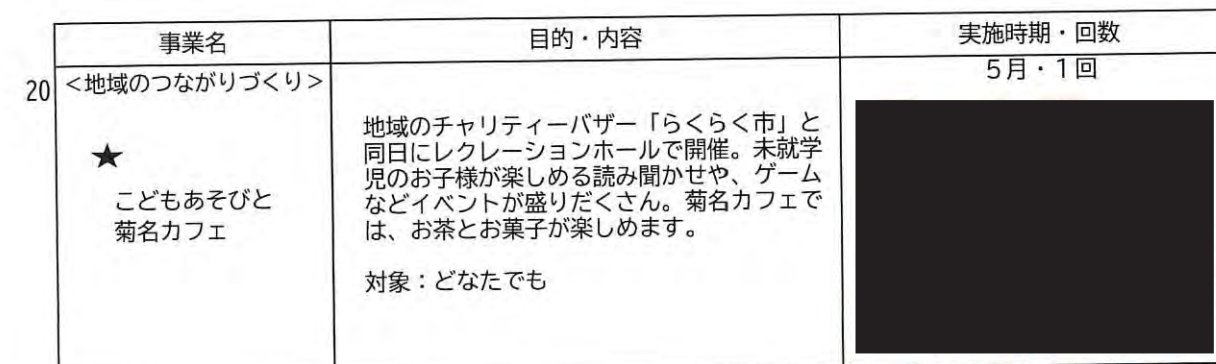 事業名
目的・内容
実施時期・回数
20
<地域のつながりづくり>
★
こどもあそびと
菊名カフェ
地域のチャリティーバザー「らくらく市」と
同日にレクレーションホールで開催。未就学
児のお子様が楽しめる読み聞かせや、ゲーム
などイベントが盛りだくさん。菊名カフェで
は、お茶とお菓子が楽しめます。
対象：どなたでも
5月・1回